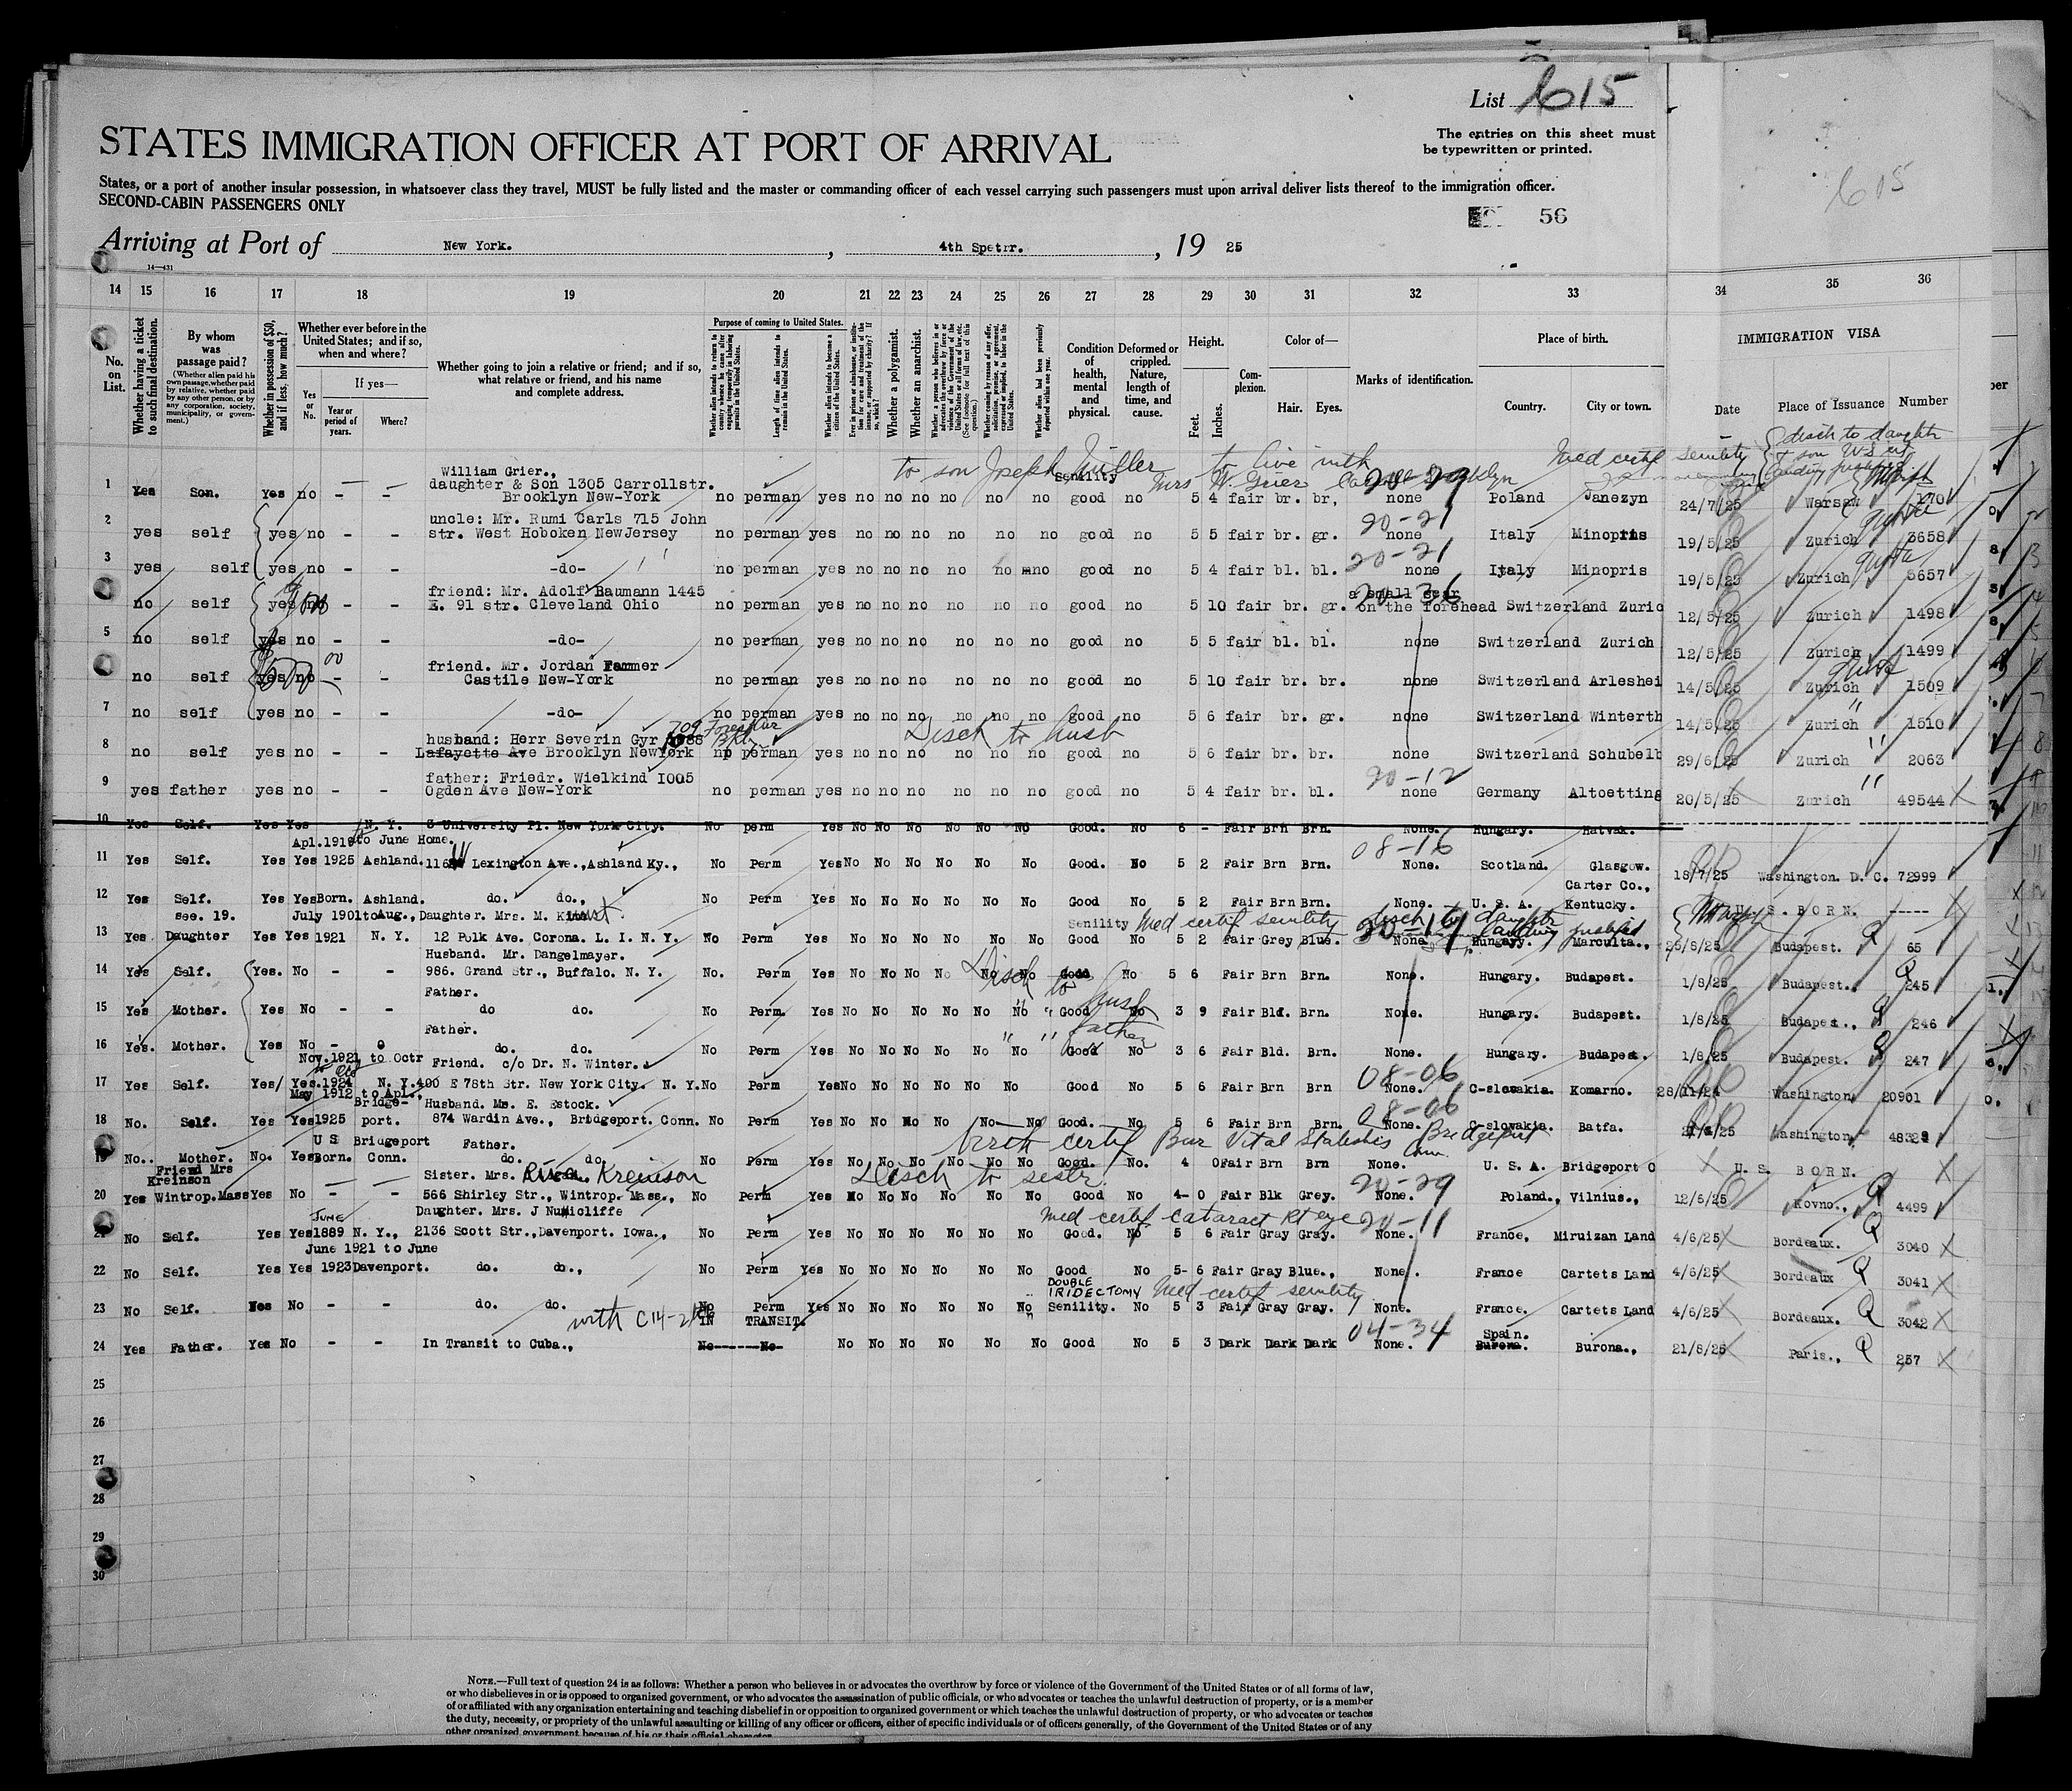 List 615
STATES IMMIGRATION OFFICER AT PORT OF ARRIVAL
The entries on this sheet must
be typewritten or printed.
615
States, or a port of another insular possession, in whatsoever class they travel, MUST be fully listed and the master or commanding officer of each vessel carrying such passengers must upon arrival deliver lists thereof to the immigration officer.
SECOND-CABIN PASSENGERS ONLY
56
Arriving at Port of New York. , 4th Spetrr. , 19 25
14—431
14 15 16 17 18 19 20 21 22 23 24 25 26 27 28 29 30 31 32 33 34 35 36
No. on List.
Whether having a ticket to such final destination.
By whom was passage paid?
(Whether alien paid his own passage, whether paid by relative, whether paid by any other person, or by any corporation, society, municipality, or government.)
Whether in possession of $50, and if less, how much?
Whether ever before in the United States; and if so, when and where?
Yes or No.
If yes—
Year or period of years.
Where?
Whether going to join a relative or friend; and if so, what relative or friend, and his name and complete address.
Purpose of coming to United States.
Whether alien intends to return to country whence he came after engaging temporarily in laboring pursuits in the United States.
Length of time alien intends to remain in the United States.
Whether alien intends to become a citizen of the United States.
Whether a polygamist.
Whether an anarchist.
Whether alien had been previously deported within one year.
Condition of health, mental and physical.
Deformed or crippled. Nature, length of time, and cause.
Height.
Feet. Inches.
Complexion.
Color of—
Hair. Eyes.
Marks of identification.
Place of birth.
Country. City or town.
IMMIGRATION VISA
Date Place of Issuance Number
to son Joseph to live with Med certif senility disch to daughter
William Grier., Senility Mrs W. Grier
daughter & Son 1305 Carrollstr.
1 Yes Son. Yes no - - Brooklyn New-York no perman yes no no no no no no good no 5 4 fair br. br, none Poland Janezyn 24/7/25 Warsaw 170
uncle: Mr. Rumi Carls 715 John 20-21
2 yes self yes no - - str. West Hoboken NewJersey no perman yes no no no no no no good no 5 5 fair br. gr. none Italy Minopris 19/5/25 Zurich 3658
20-21
3 yes self yes no - - -do- no perman yes no no no no no no good no 5 4 fair bl. bl. none Italy Minopris 19/5/25 Zurich 5657
friend: Mr. Adolf Baumann 1445 a small scar 20-36
no self yes no - - E. 91 str. Cleveland Ohio no perman yes no no no no no no good no 5 10 fair br. gr. on the forehead Switzerland Zuric 12/5/25 Zurich 1498
5 no self yes no - - -do- no perman yes no no no no no no good no 5 5 fair bl. bl. none Switzerland Zurich 12/5/25 Zurich 1499
friend. Mr. Jordan Fammer
no self yes no - - Castile New-York no perman yes no no no no no no good no 5 10 fair br. br. none Switzerland Arleshei 14/5/25 Zurich 1509
7 no self yes no - - -do- no perman yes no no no no no no good no 5 6 fair br. gr. none Switzerland Winterth 14/5/25 Zurich 1510
husband: Herr Severin Gyr Disch to husb
8 no self yes no - - Lafayette Ave Brooklyn NewYork no perman yes no no no no no no good no 5 6 fair br. br. none Switzerland Schubelb 29/6/25 Zurich 2063
father: Friedr. Wielkind I005 20-12
9 yes father yes no - - Ogden Ave New-York no perman yes no no no no no no good no 5 4 fair br. bl. none Germany Altoetting 20/5/25 Zurich 49544
10 Yes Self. Yes Yes N. Y. 3 University Pl. New York City. No perm Yes No No No No No No Good. No 6 - Fair Brn Brn. None. Hungary. Hatvak.
Apl.1919 to June Home. 08-16
11 Yes Self. Yes Yes 1925 Ashland. Lexington Ave.,Ashland Ky., No Perm Yes No No No No No No Good. No 5 2 Fair Brn Brn. None. Scotland. Glasgow. 18/7/25 Washington. D. C. 72999
Carter Co.,
12 Yes Self. Yes Yes Born. Ashland. do. do., No Perm Yes No No No No No No Good No 5 2 Fair Brn Brn. None. U. S. A. Kentucky. U. S. BORN. -----
see. 19. July 1901 to Aug., Daughter. Mrs. M. Senility Med certif senility disch to daughter landing justified
13 Yes Daughter Yes Yes 1921 N. Y. 12 Polk Ave. Corona. L. I. N. Y. No Perm Yes No No No No No No Good No 5 2 Fair Grey Blue. None Hungary. Marculta., 25/8/25 Budapest. 65
Husband. Mr. Dangelmayer.
14 Yes Self. Yes. No - - 986. Grand Str., Buffalo. N. Y. No. Perm Yes No No No No No No Good No 5 6 Fair Brn Brn. None. Hungary. Budapest. 1/8/25 Budapest. 245
Father. Disch to husb
15 Yes Mother. Yes No - - do do. No Perm. Yes No No No No No No Good No 3 9 Fair Bld. Brn. None. Hungary. Budapest. 1/8/25 Budapest., 246
Father. " " father
16 Yes. Mother. Yes No - o do. do. No Perm Yes No No No No No No Good No 3 6 Fair Bld. Brn. None. Hungary. Budapest. 1/8/25 Budapest. 247
Nov.1921 to Octr Friend. c/o Dr. N. Winter. 08-06
17 Yes Self. Yes/ Yes.1924 N. Y. 400 E 78th Str. New York City. N. Y. No Perm Yes No No No No No No Good No 5 6 Fair Brn Brn None. C-slovakia. Komarno. 28/11/24 Washington 20901
May 1912 to Apl., Bridge- Husband. Mr. E. Estock. 08-06
18 No. Self. Yes Yes 1925 port. 874 Wardin Ave., Bridgeport. Conn. No Perm Yes No No No No No No Good. No 5 6 Fair Brn Brn. None. C-slovakia. Batfa. Washington.
U S Bridgeport Father. birth certif Bur Vital Statistics Bridgeport Conn.
19 No.. Mother. No. Yes Born. Conn. do. do. No Perm Yes No No No No No No Good. No. 4 0 Fair Brn Brn None. U. S. A. Bridgeport C U. S. BORN.
Friend Mrs Kreinson Sister. Mrs. Kreinson Disch to sistr. 20-29
20 Yes Wintrop.Mass Yes No - - 566 Shirley Str., Wintrop. Mass., No Perm Yes No No No No No No Good No 4- 0 Fair Blk Grey. None. Poland., Vilnius., 12/6/25 Kovno., 4499
JUNE Daughter. Mrs. J Numicliffe Med certif cataract Rt eye 20-11
21 No Self. Yes Yes 1889 N. Y., 2136 Scott Str.,Davenport. Iowa., No Perm Yes No No No No No No Good. No 5 6 Fair Gray Gray. None. France, Miruizan Land 4/6/25 Bordeaux. 3040
June 1921 to June
22 No Self. Yes Yes 1923 Davenport. do. do., No Perm Yes No No No No No No Good No 5- 6 Fair Gray Blue., None. France Cartets Land 4/6/25 Bordeaux 3041
DOUBLE IRIDECTOMY Med certif senility
23 No Self. Yes No - - do. do. No Perm Yes No No No No No No Senility. No 5 3 Fair Gray Gray. None. France. Cartets Land 4/6/25 Bordeaux. 3042
with IN TRANSIT. 04-34 Spain.
24 Yes Father. Yes No - - In Transit to Cuba., No------No- No No No No No No Good No 5 3 Dark Dark Dark None. Burona. Burona., 21/8/25 Paris., 257
25
26
27
28
29
30
NOTE.—Full text of question 24 is as follows: Whether a person who believes in or advocates the overthrow by force or violence of the Government of the United States or of all forms of law,
or who disbelieves in or is opposed to organized government, or who advocates the assassination of public officials, or who advocates or teaches the unlawful destruction of property, or is a member
of or affiliated with any organization entertaining and teaching disbelief in or opposition to organized government or which teaches the unlawful destruction of property, or who advocates or teaches
the duty, necessity, or propriety of the unlawful assaulting or killing of any officer or officers, either of specific individuals or of officers generally, of the Government of the United States or of any
other organized government because of his or their official character.